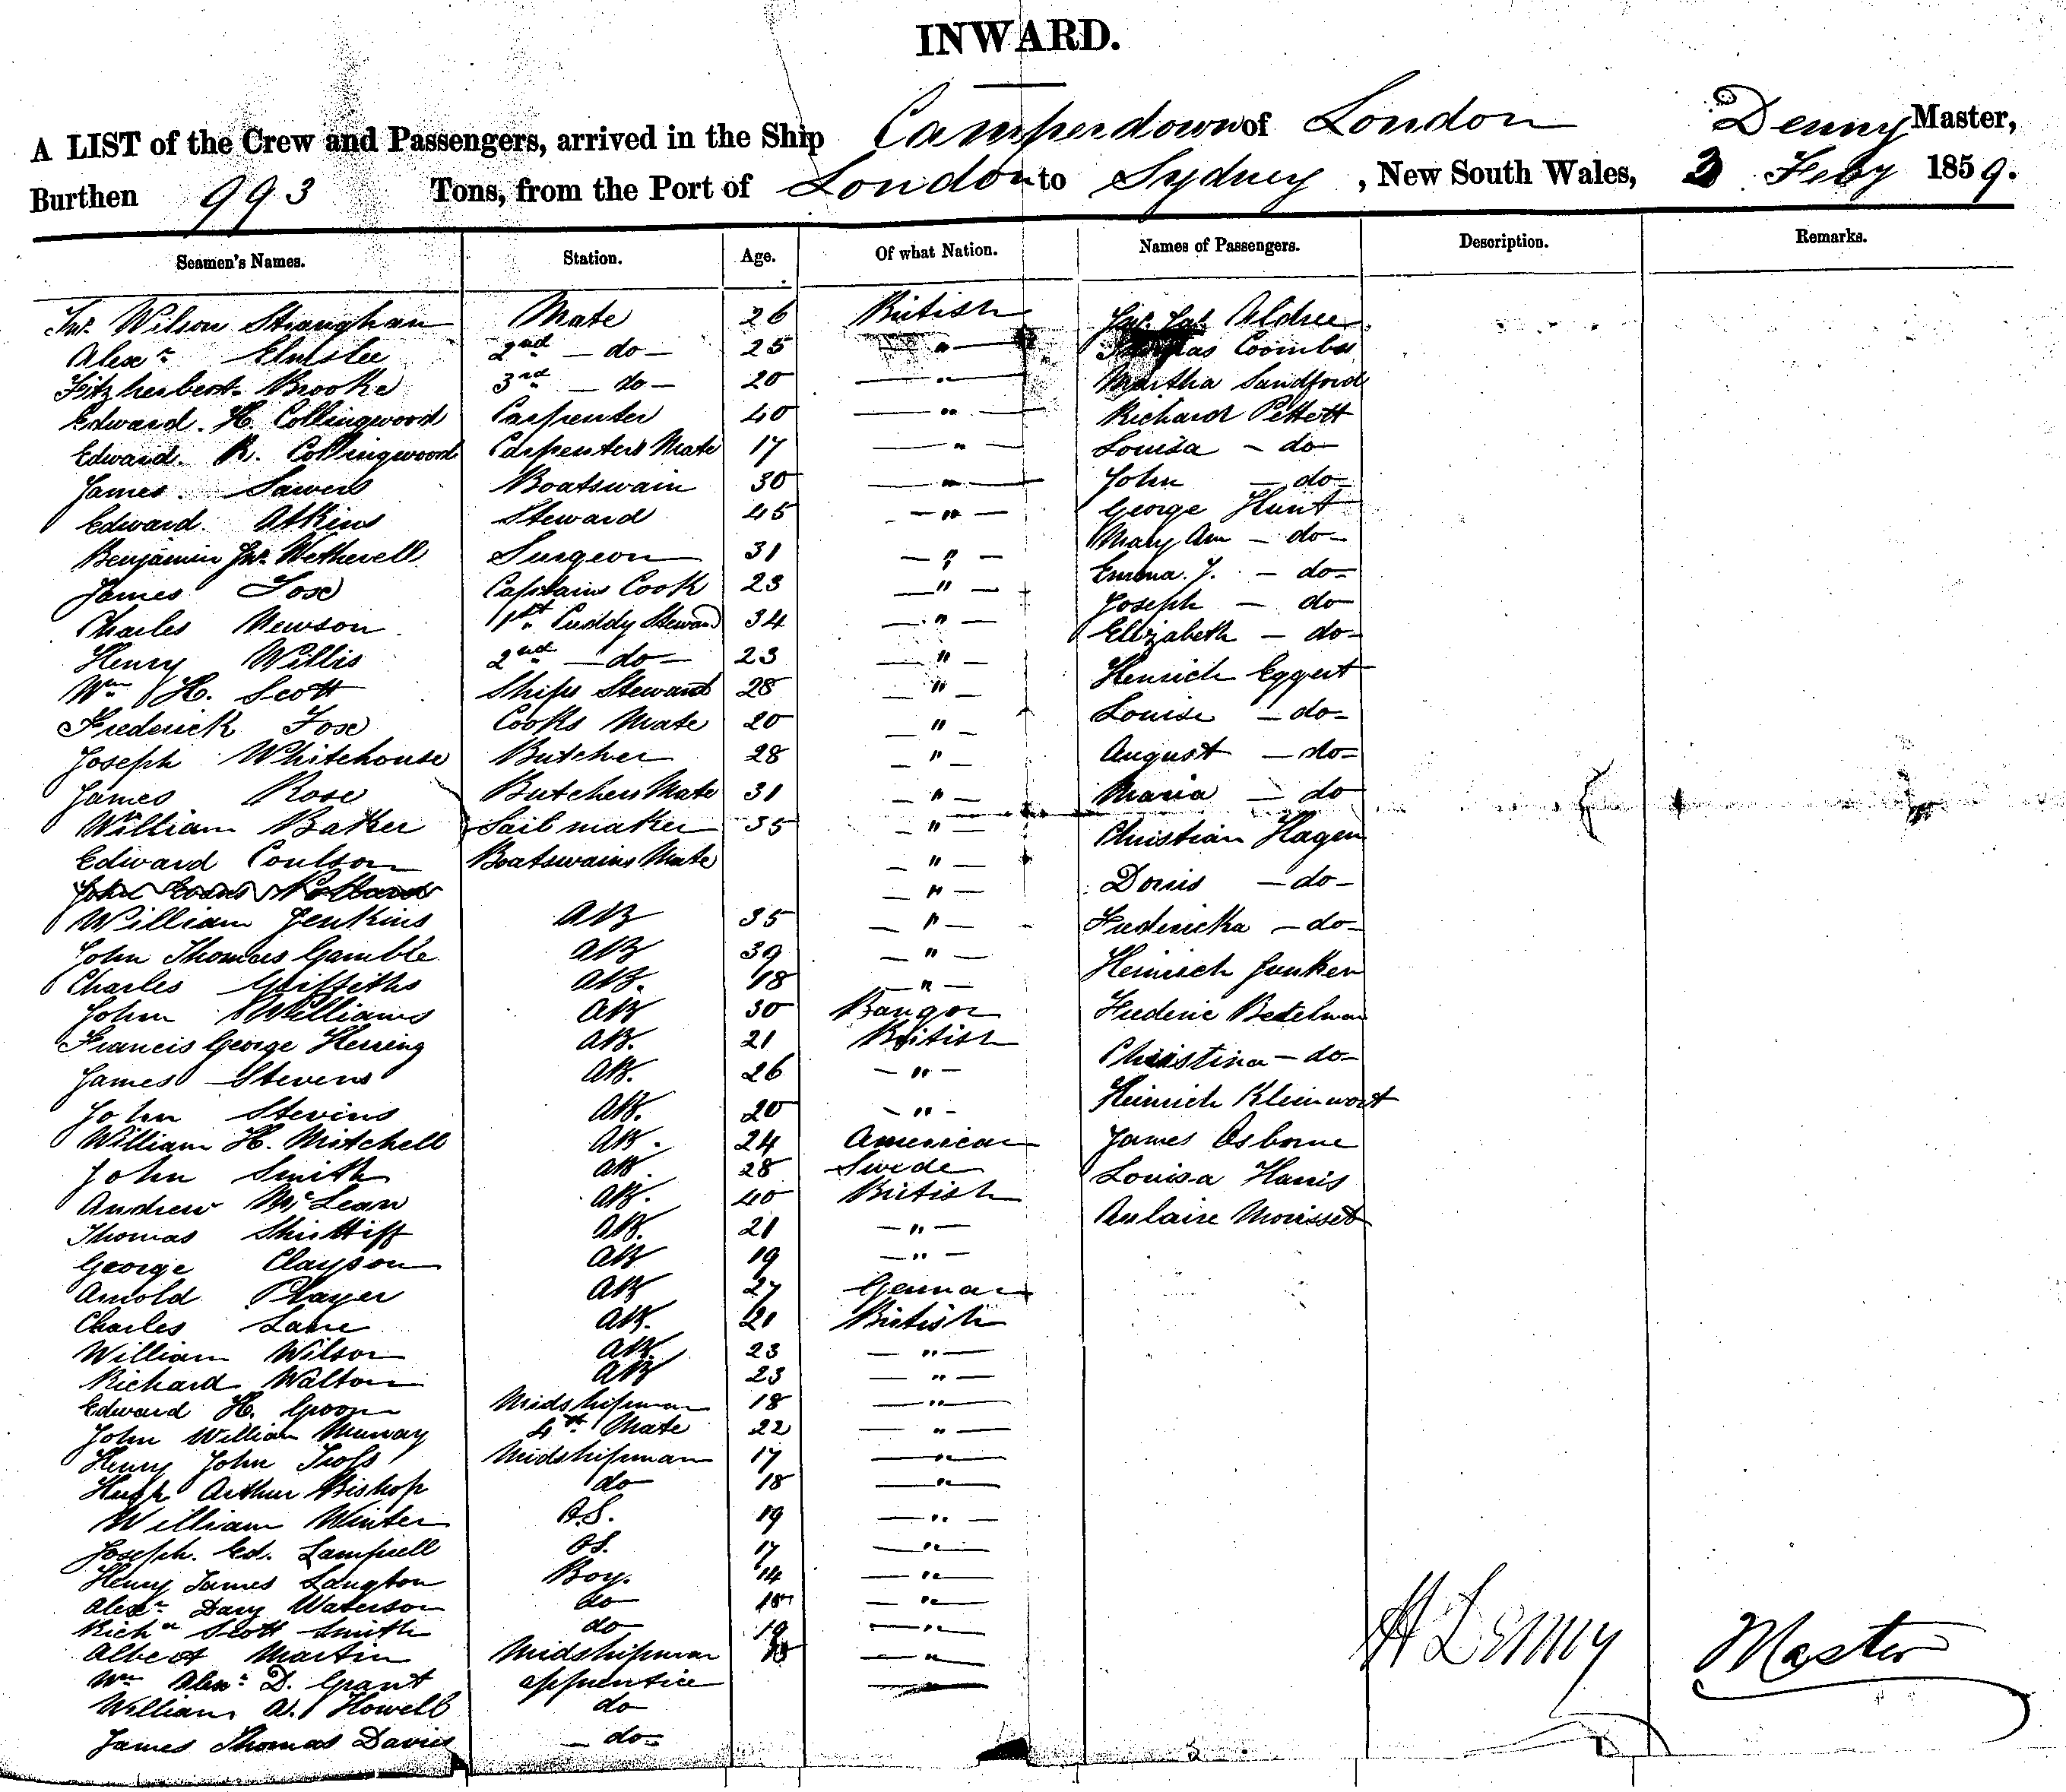 INWARD.
A LIST of the Crew and Passengers, arrived in the Ship Camperdown of London Denny Master,
Burthen 993 Tons, from the Port of London to Sydney, New South Wales, 2 Feby 1859.
Seamen's Names. Station. Age. Of what Nation. Names of Passengers. Description. Remarks.
Jno. Wilson Straughan Mate 26 British Aldree
Alexr. Elmslie 2nd - do - 25 " Coombs
Fitzherbert Brooke 3rd - do - 20 " Martha Sandford
Edward. H. Collingwood Carpenter 40 " Richard Pettett
Edward. R. Collingwood Carpenters Mate 17 " Louisa - do -
James Sawers Boatswain 30 " John - do -
Edward Atkins Steward 45 " George Hunt
Benjamin Jno. Wetherell Surgeon 31 " Mary Ann - do -
James Fose Captains Cook 23 " Emma. J. - do -
Charles Newson 1st Cuddy Steward 34 " Joseph - do
Henry Willis 2nd - do - 23 " Elizabeth - do -
Wm H. Scott Ships Steward 28 " Henrich Eggert
Frederick Fose Cooks Mate 20 " Louise - do -
Joseph Whitehouse Butcher 28 " August - do -
James Rose Butchers Mate 31 " Maria - do
William Baker Sail maker 35 " Christian Hagen
Edward Coulson Boatswains Mate "
John "  Dorris - do -
William Jenkins AB 35 " Fredericka - do -
John Thomas Gamble AB 39 " Heinrich Junker
Charles Griffiths AB. 18 "
John Williams AB 30 Bangor Frederic Betelman
Francis George Herring AB. 21 British Christina - do -
James Stevens AB. 26 "
John Stevins AB. 20 " Heinrich Kleinwort
William H. Mitchell AB. 24 American James Osborne
John Smith AB. 28 Swede Louisa Harris
Andrew McLean AB. 40 British
Thomas Shirtliff AB. 21 " Morisset
George Clayson AB 19 "
Arnold Player AB 27 German
Charles Lane AB. 21 British
William Wilson AB. 23 "
Richard Walton AB 23 "
Edward H. Groom Midshipman 18 "
John William Murray 4th Mate 22 "
Henry John Midshipman 17 "
Hugh Arthur Bishop do 18 "
William Winter O.S. 19 "
Joseph. Ed. Lamprell OS. 17 "
Henry James Langton Boy. 14 "
Alexr. Dary Waterson do "
Richd Scott Smith do 19 "
Albert Martin Midshipman 18 "
Wm Alexr. D. Grant apprentice
William A. Howell do
James Thomas Davies - do -
H Denny Master